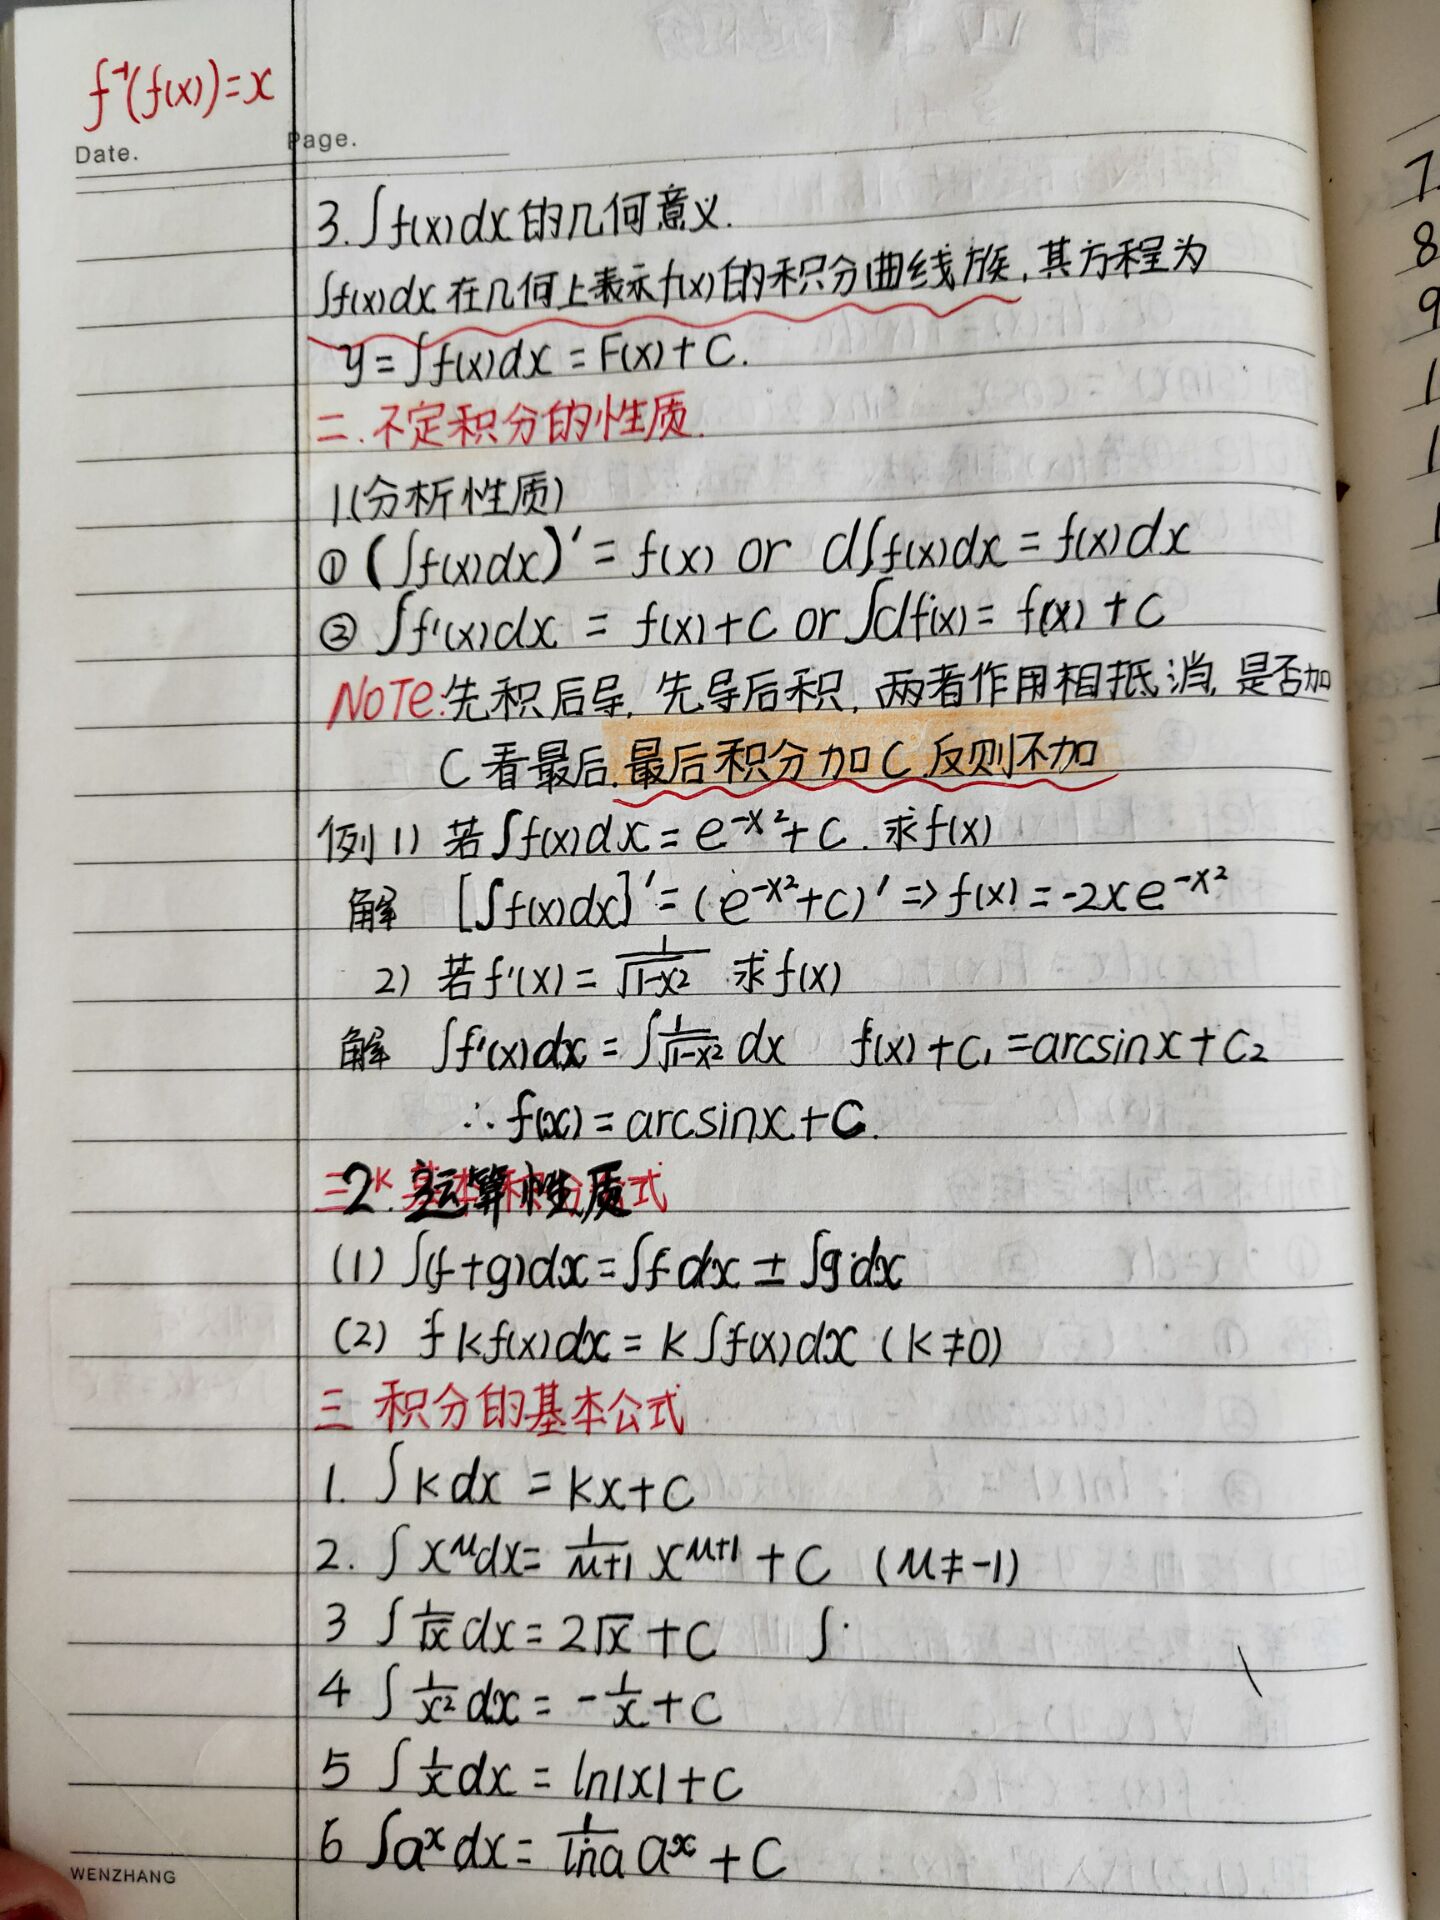 f⁻¹(f(x))=x
Date. Page.
3.∫f(x)dx的几何意义.
∫f(x)dx在几何上表示f(x)的积分曲线族,其方程为
y=∫f(x)dx=F(x)+C.
二.不定积分的性质.
1.(分析性质)
①(∫f(x)dx)'=f(x) or d∫f(x)dx=f(x)dx
②∫f'(x)dx=f(x)+C or ∫df(x)=f(x)+C
NOTE:先积后导,先导后积,两者作用相抵消,是否加
C看最后.最后积分加C.反则不加
例1)若∫f(x)dx=e^{-x²}+C.求f(x)
解 [∫f(x)dx]'=(e^{-x²}+C)'=>f(x)=-2xe^{-x²}
2)若f'(x)=1/√(1-x²) 求f(x)
解 ∫f'(x)dx=∫1/√(1-x²) dx f(x)+C₁=arcsinx+C₂
∴f(x)=arcsinx+C.
2.运算性质
(1)∫(f+g)dx=∫fdx±∫gdx
(2) f kf(x)dx=k∫f(x)dx (k≠0)
三 积分的基本公式
1. ∫kdx=kx+C
2. ∫x^μdx=1/(μ+1) x^{μ+1}+C (μ≠-1)
3 ∫1/√x dx=2√x+C ∫
4 ∫1/x² dx=-1/x+C
5 ∫1/x dx=ln|x|+C
6 ∫a^x dx=1/lna a^x+C
WENZHANG
7
8
9
1
1
1
1